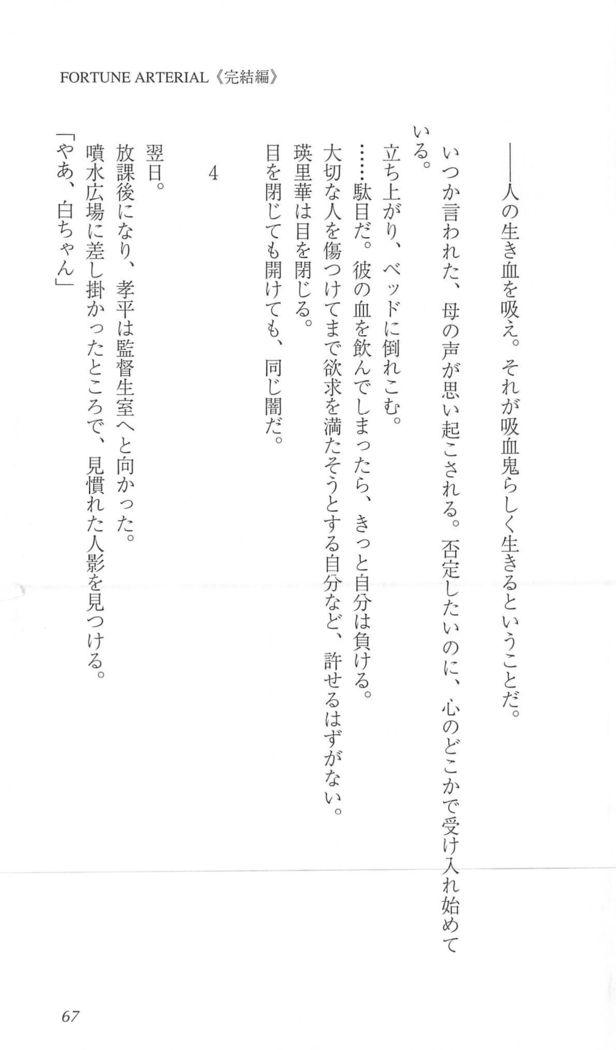 FORTUNE ARTERIAL《完結編》
――人の生き血を吸え。それが吸血鬼らしく生きるということだ。
いつか言われた、母の声が思い起こされる。否定したいのに、心のどこかで受け入れ始めて
いる。
立ち上がり、ベッドに倒れこむ。
……駄目だ。彼の血を飲んでしまったら、きっと自分は負ける。
大切な人を傷つけてまで欲求を満たそうとする自分など、許せるはずがない。
瑛里華は目を閉じる。
目を閉じても開けても、同じ闇だ。
4
翌日。
放課後になり、孝平は監督生室へと向かった。
噴水広場に差し掛かったところで、見慣れた人影を見つける。
「やあ、白ちゃん」
67